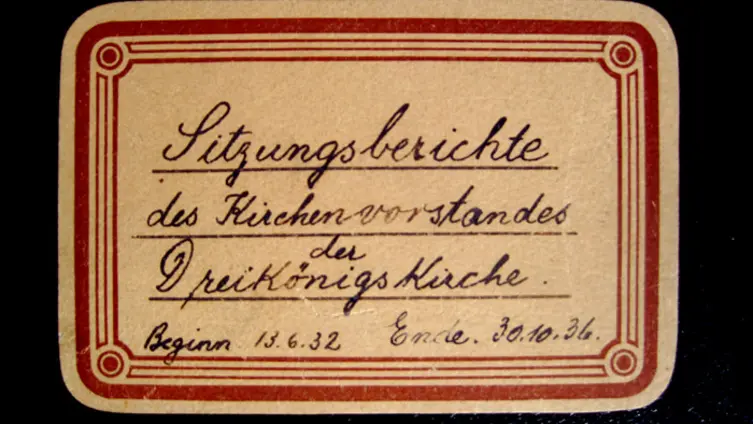 Sitzungsberichte
des Kirchenvorstandes
der
Dreikönigskirche.
Beginn 13.6.32 Ende. 30.10.36.